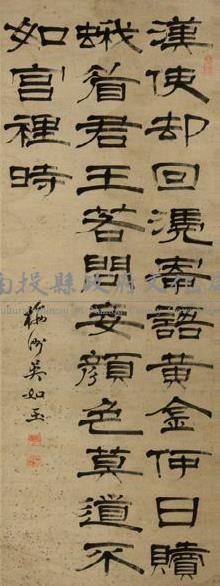 漢使却回憑寄語黃金何日贖
蛾眉君王若問妾顏色莫道不
如宮裡時
梅洲吳如玉
南投縣政府文化